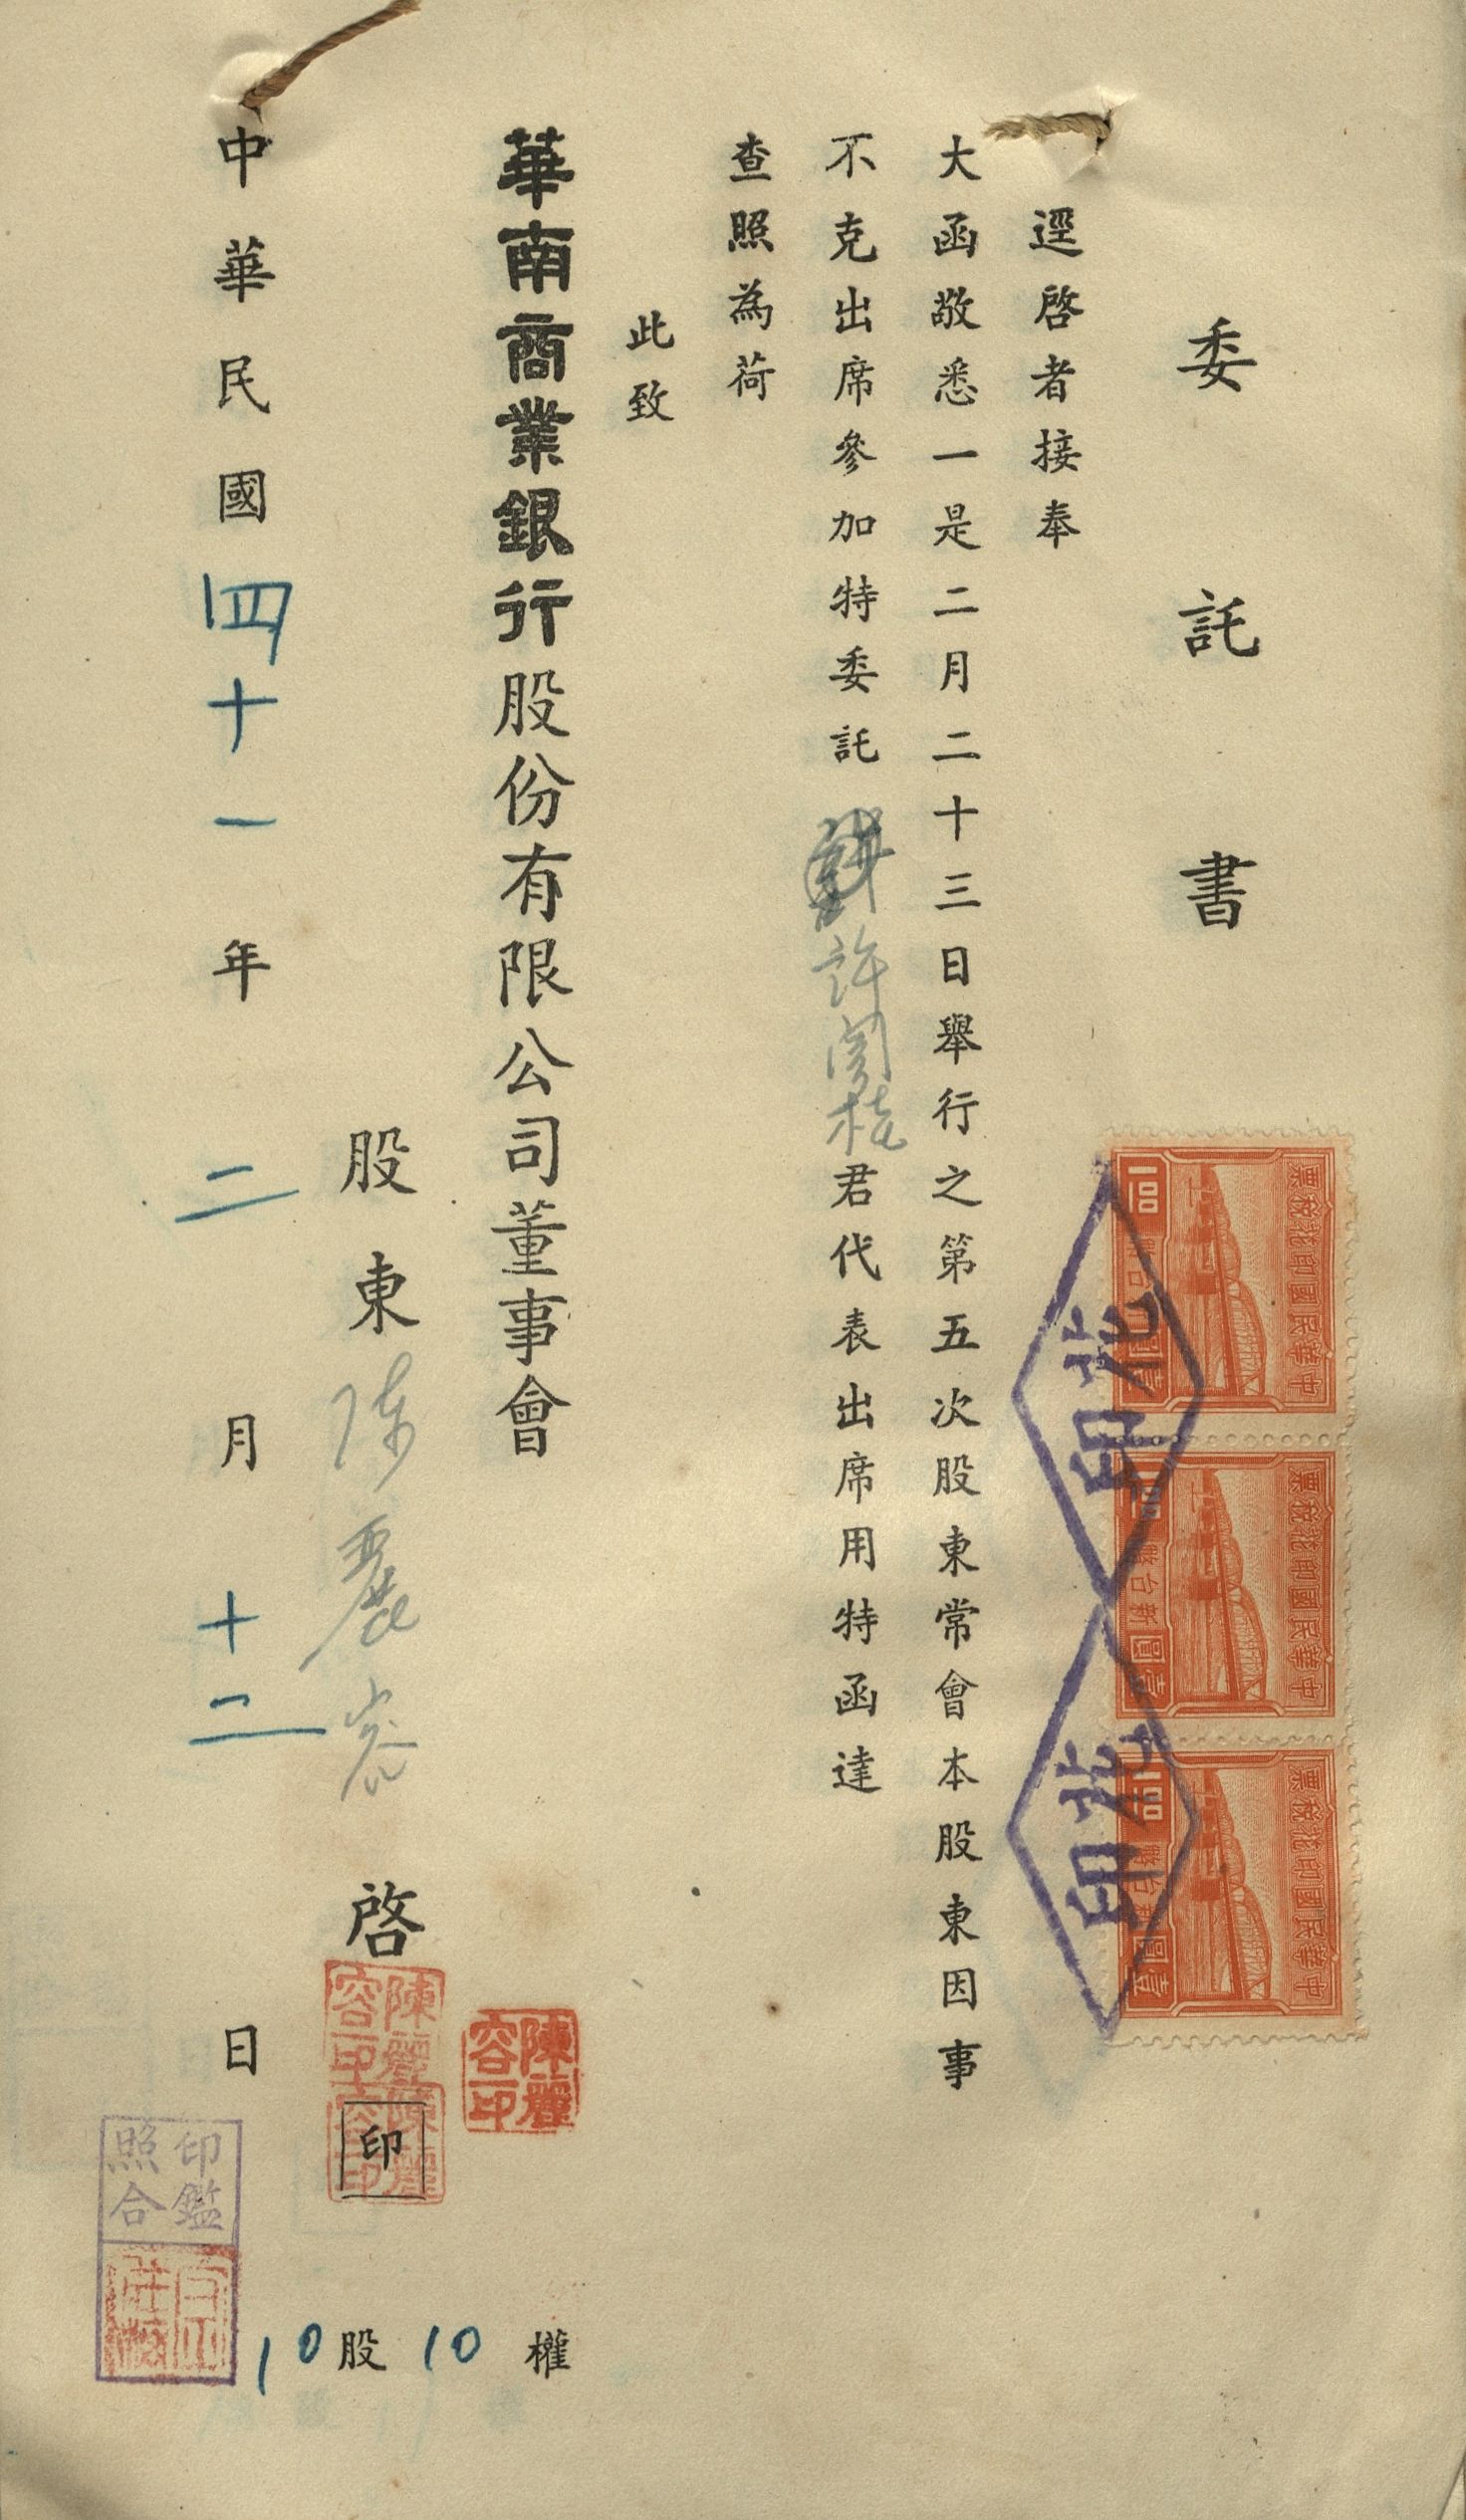 委託書
逕啓者接奉
大函敬悉一是二月二十三日舉行之第五次股東常會本股東因事
不克出席參加特委託許
君代表出席用特函達
查照為荷
此致
華南商業銀行股份有限公司董事會
股東陳麗容啓
印
陳麗容印
陳麗容印
陳麗容印
10股10權
中華民國四十一年二月十二日
印鑑
照合
中華民國印花稅票
新台幣壹圓
1.00
中華民國印花稅票
新台幣壹圓
1.00
中華民國印花稅票
新台幣壹圓
1.00
印花
印花